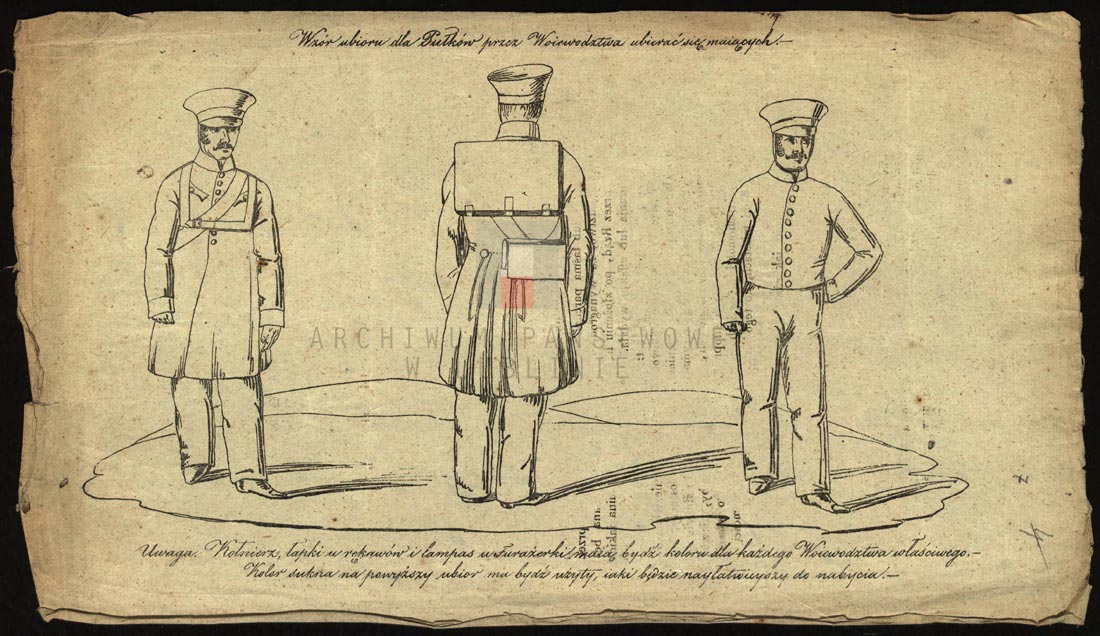 Wzór ubioru dla Pułków przez Woiewodztwa ubierać się maiących.—
ARCHIWUM PAŃSTWOWE
W LUBLINIE
Uwaga. Kołnierz, łapki u rękawów i lampas u Furażerki maią bydź koloru dla każdego Woiewodztwa właściwego.—
Kolor sukna na powyższy ubior ma bydź użyty, iaki będzie nayłatwieyszy do nabycia.—